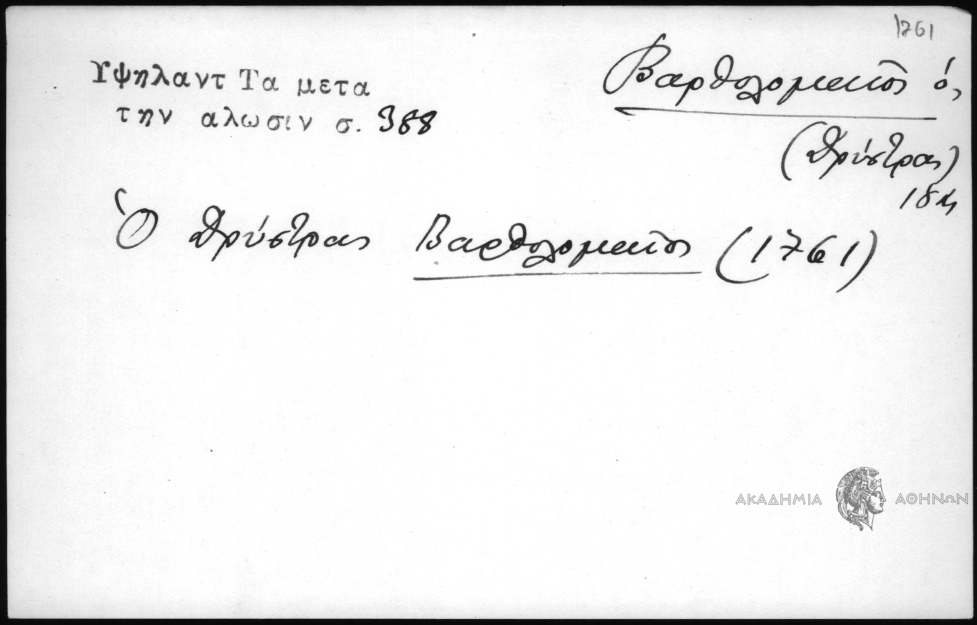 1761
Υψηλαντ Τα μετα
την αλωσιν σ. 388
Βαρθολομαῖος ὁ,
(Δρύστρας)
Ὁ Δρύστρας Βαρθολομαῖος (1761)
ΑΚΑΔΗΜΙΑ ΑΘΗΝΩΝ